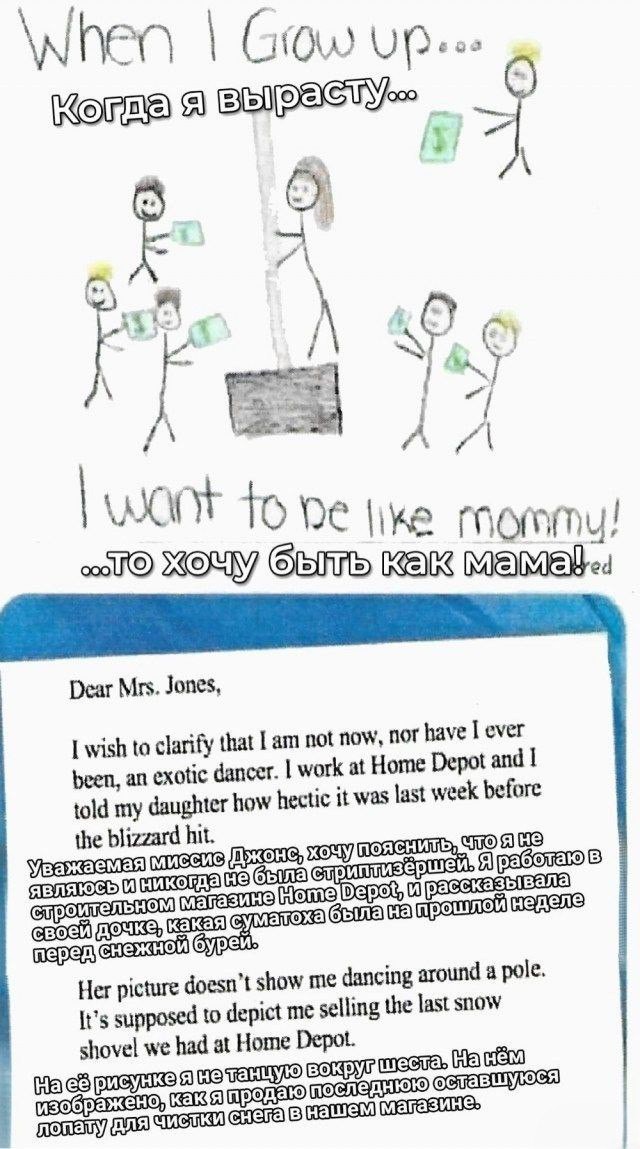 When I Grow up...
Когда я вырасту...
I want to be like mommy!
...то хочу быть как мама!
Dear Mrs. Jones,
I wish to clarify that I am not now, nor have I ever
been, an exotic dancer. I work at Home Depot and I
told my daughter how hectic it was last week before
the blizzard hit.
Уважаемая миссис Джонс, хочу пояснить, что я не
являюсь и никогда не была стриптизёршей. Я работаю в
строительном магазине Home Depot, и рассказывала
своей дочке, какая суматоха была на прошлой неделе
перед снежной бурей.
Her picture doesn't show me dancing around a pole.
It's supposed to depict me selling the last snow
shovel we had at Home Depot.
На её рисунке я не танцую вокруг шеста. На нём
изображено, как я продаю последнюю оставшуюся
лопату для чистки снега в нашем магазине.